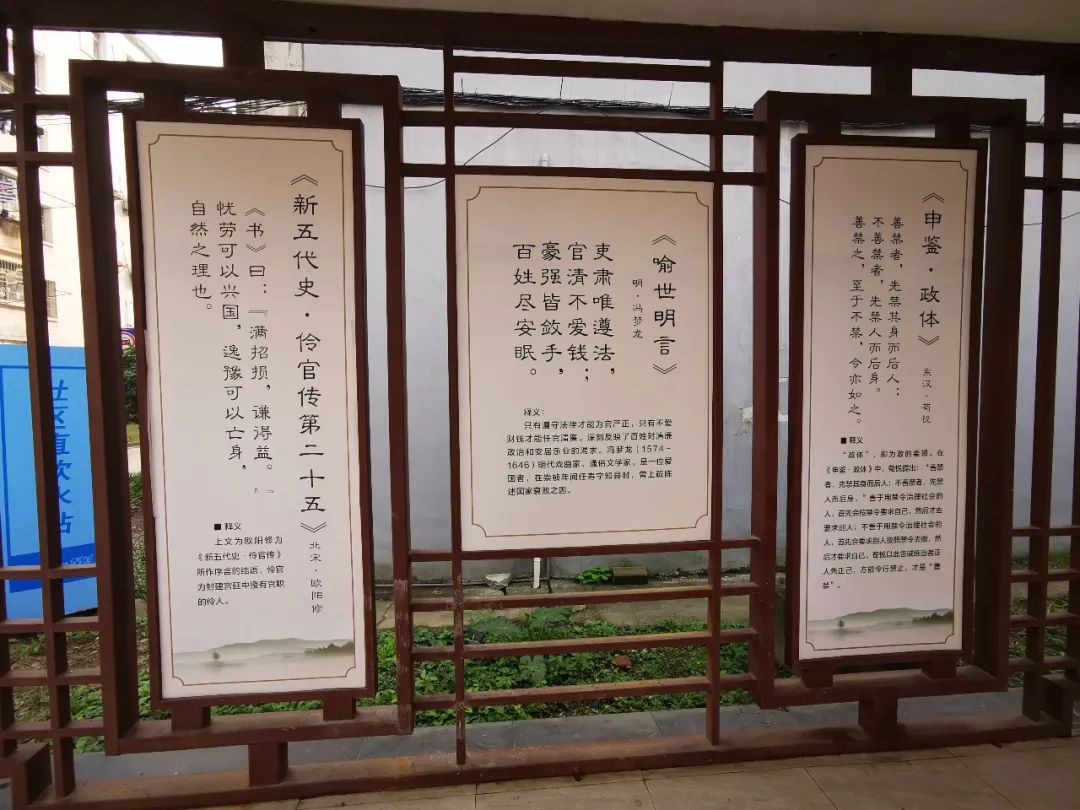 《新五代史·伶官传第二十五》北宋·欧阳修
《书》曰：『满招损，谦得益。』
忧劳可以兴国，逸豫可以亡身，
自然之理也。
■ 释义
上文为欧阳修为
《新五代史·伶官传》
所作序言的结语，伶官
为封建宫廷中授有官职
的伶人。
《喻世明言》
明·冯梦龙
吏肃唯遵法，
官清不爱钱；
豪强皆敛手，
百姓尽安眠。
释义：
只有遵守法律才能为官严正，只有不爱
财钱才能任官清廉。深刻反映了百姓对清廉
政治和安居乐业的渴求。冯梦龙（1574～
1646）明代戏曲家、通俗文学家，是一位爱
国者，在崇祯年间任寿宁知县时，曾上疏陈
述国家衰败之因。
《申鉴·政体》 东汉·荀悦
善禁者，先禁其身而后人；
不善禁者，先禁人而后身。
善禁之，至于不禁，令亦如之。
■ 释义
“政体”，即为政的要领。在
《申鉴·政体》中，荀悦提出：“善禁
者，先禁其身而后人；不善禁者，先禁
人而后身。”善于用禁令治理社会的
人，首先会按禁令要求自己，然后才去
要求别人；不善于用禁令治理社会的
人，首先会要求别人按照禁令去做，然
后才要求自己，荀悦以此告诫统治者正
人先正己，方能令行禁止，才是“善
禁”。
社区直饮水站